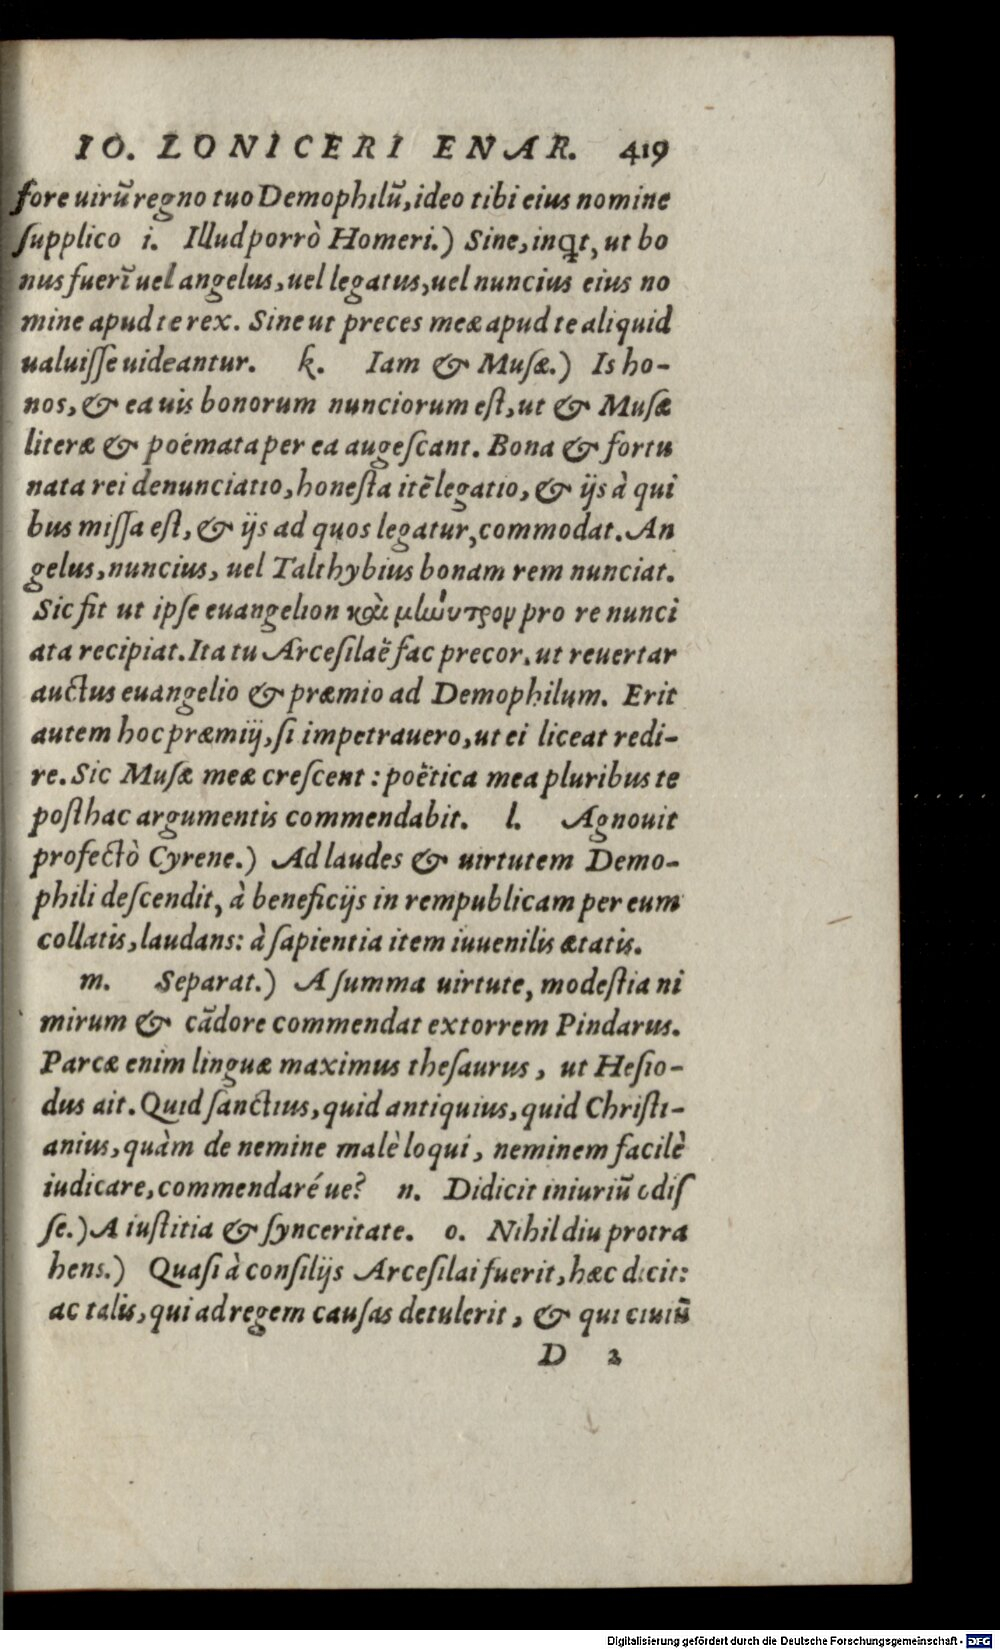 IO. LONICERI ENAR. 419
fore uirũ regno tuo Demophilũ, ideo tibi eius nomine
ſupplico i. Illud porrò Homeri.) Sine, inqt, ut bo
nus fuerĩ uel angelus, uel legatus, uel nuncius eius no
mine apud te rex. Sine ut preces meæ apud te aliquid
ualuiſſe uideantur. k. Iam & Muſæ.) Is ho-
nos, & ea uis bonorum nunciorum eſt, ut & Muſæ
literæ & poëmata per ea augeſcant. Bona & fortu
nata rei denunciatio, honeſta itẽ legatio, & ijs à qui
bus miſſa eſt, & ijs ad quos legatur, commodat. An
gelus, nuncius, uel Talthybius bonam rem nunciat.
Sic fit ut ipſe euangelion καὶ μήνυτρον pro re nunci
ata recipiat. Ita tu Arceſilaë fac precor, ut reuertar
auctus euangelio & præmio ad Demophilum. Erit
autem hoc præmij, ſi impetrauero, ut ei liceat redi-
re. Sic Muſæ meæ creſcent : poëtica mea pluribus te
poſthac argumentis commendabit. l. Agnouit
profectò Cyrene.) Ad laudes & uirtutem Demo-
phili deſcendit, à beneficijs in rempublicam per eum
collatis, laudans: à ſapientia item iuuenilis ætatis.
m. Separat.) A ſumma uirtute, modeſtia ni
mirum & cãdore commendat extorrem Pindarus.
Parcæ enim linguæ maximus theſaurus, ut Heſio-
dus ait. Quid ſanctius, quid antiquius, quid Chriſti-
anius, quàm de nemine malè loqui, neminem facilè
iudicare, commendaré ue? n. Didicit iniuriũ odiſ
ſe.) A iuſtitia & ſynceritate. o. Nihil diu protra
hens.) Quaſi à conſilijs Arceſilai fuerit, hæc dicit:
ac talis, qui ad regem cauſas detulerit, & qui ciuiũ
D 2
Digitalisierung gefördert durch die Deutsche Forschungsgemeinschaft - DFG